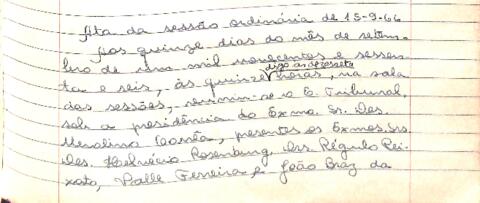 Ata da sessão ordinária de 15-9-66
Aos quinze dias do mês de setem-
bro de um mil novecentos e sessen-
ta e seis, às quinze digo às dezesete horas, na sala
das sessões, reuniu-se o E. Tribunal,
sob a presidência do Exmo. Sr. Des.
Merolino Corrêa, presentes os Exmos. Srs.
Des. Helvécio Rosenburg, Drs. Régulo Pei-
xoto, Valle Ferreira e João Braz da